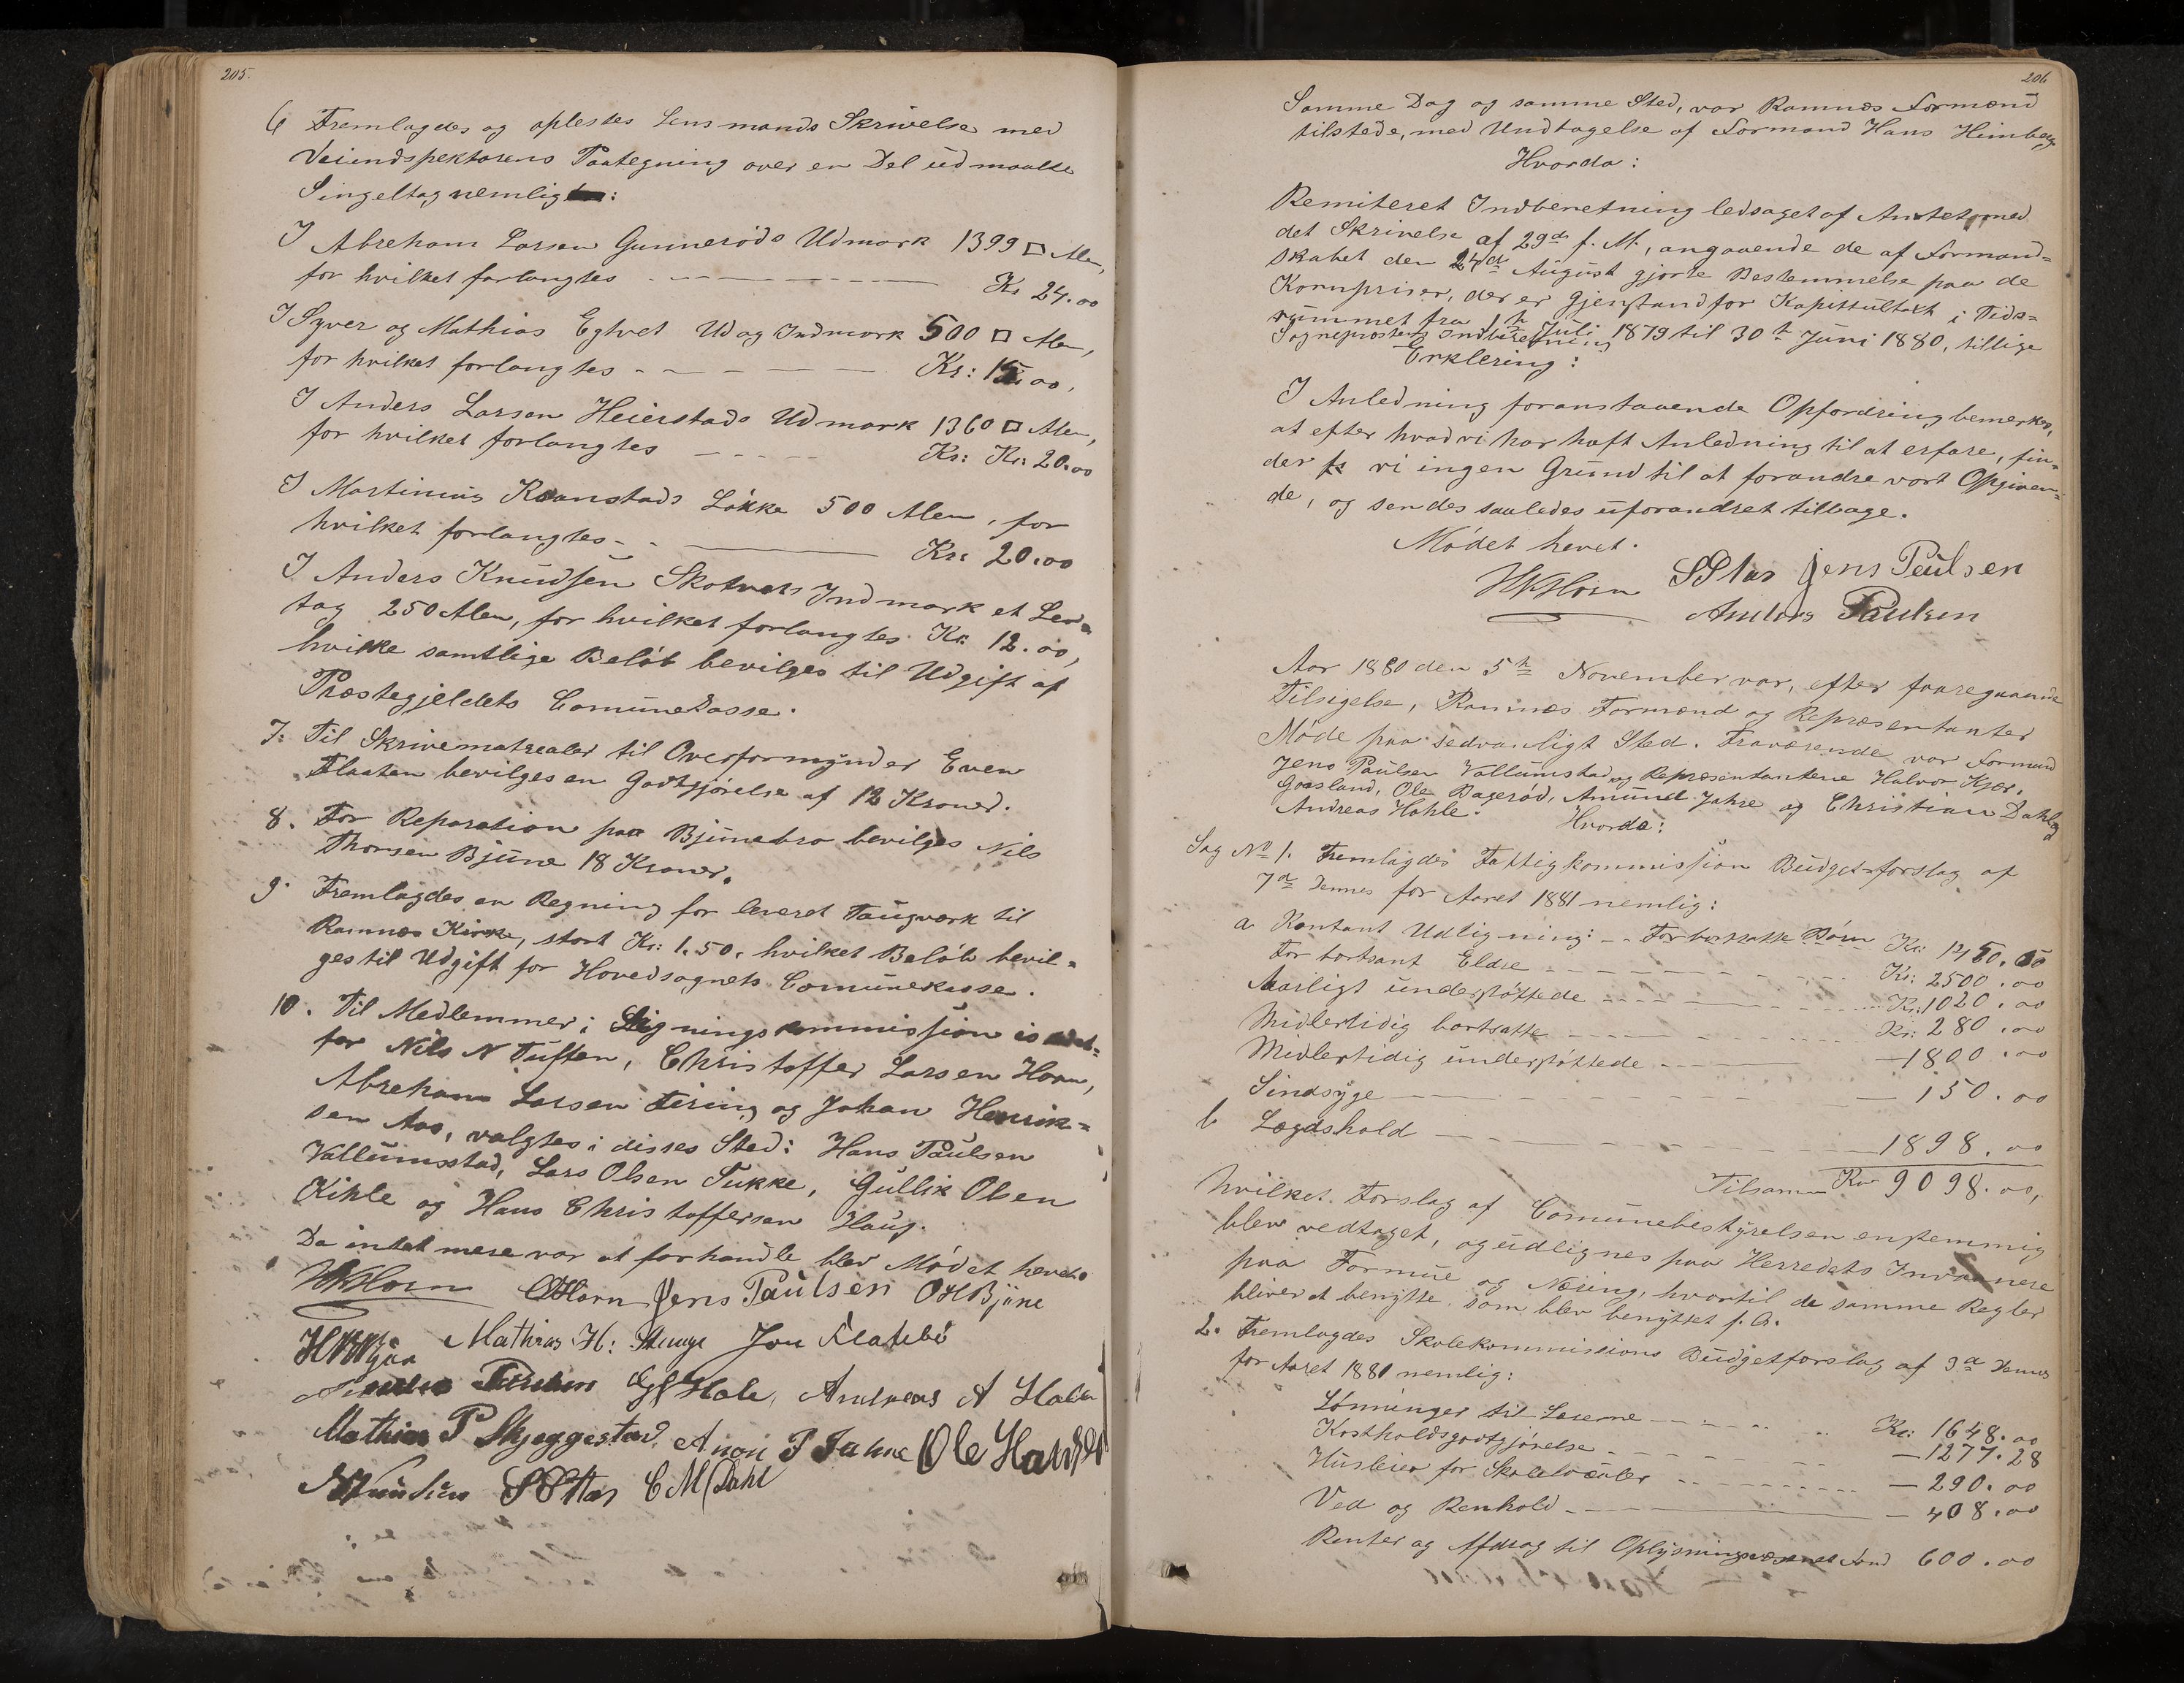 205.
6 Fremlagdes og oplestes Lensmands Skrivelse med
Veiindspektørens Paategning over en Del udmaalte
Singeltag nemlig :
I Abreham Larsen Gunnerøds Udmark 1399 □ Alen,
for hvilket forlangtes - - - - Kr 24.00
I Syver og Mathias Egtvet Ud og Indmark 500 □ Alen,
for hvilket forlangtes - - - - - Kr: 15.00,
I Anders Larsen Heierstads Udmark 1360 □ Alen,
for hvilket forlangtes - - - - - Kr: Kr: 20.00
I Martinius Kranstads Løkke 500 Alen, for
hvilket forlangtes - - - Kr: 20.00
I Anders Knudsen Skotvets Indmark et Ler=
tag 250 Alen, for hvilket forlangtes Kr: 12.00,
hvilke samtlige Beløb bevilges til Udgift af
Præstegjeldets Comünekasse.
7: Til Skrivematrealer til Overformynder Even
Flaaten bevilges en Godtgjørelse af 12 Kroner.
8. For Reparation paa Bjünebro bevilges Nils
Thorsen Bjüne 18 Kroner.
9. Fremlagdes en Regning for leveret Taugværk til
Ramnes Kirke, stort Kr: 1.50, hvilket Beløb bevil=
ges til Udgift for Hovedsognets Comünekasse.
10. Til Medlemmer i Ligningskommission istedet=
for Nils N Tüften, Christoffer Larsen Horn,
Abreham Larsen Firing og Johan Henrik=
sen Aas, valgtes i disses Sted: Hans Paülsen
Vallümsstad, Lars Olsen Tükke, Güllik Olsen
Kihle og Hans Christoffersen Haug.
Da intet mere var at forhandle blev Mødet hevet.
HKHorn OHorn Jens Paülsen OHBjüne
Mathias H: Stange Jon Flaatebø
Hale, Andreas A Hahle
Mathias P Skjeggestad. Amon P Jahre Ole
SOAas CM Dahl
206
Samme Dag og samme Sted, var Ramnes Formænd
tilstede, med Undtagelse af Formand Hans Himberg
Hvorda:
Remiteret Indberetning ledsaget af Amtet med
det Skrivelse af 29de f. M., angaaende de af Formand=
skabet den 24de August gjorte Bestemmelse paa de
Kornpriser, der er Gjenstand for Kapittültaxt i Tids=
rümmet fra 1te Jüli 1879 til 30te Jüni 1880, tillige
Sogneprestens Indberetning
Erklering:
I Anledning foranstaaende Opfordring bemerkes,
at efter hvad vi har haft Anledning til at erfare, fin=
der vi ingen Gründ til at forandre vort Opgiven=
de, og sendes saaledes üforandret tilbage.
Mødet hevet.
HKHorn SOAas Jens Paülsen
Anders Paülsen
Aar 1880 den 5te November var, efter foregaaende
Tilsigelse, Ramnes Formænd og Repræsentanter
Møde paa sedvanligt Sted. Fraværende var Formand
Jens Paülsen Vallümstad og Repræsentantene Halvor Kjær,
Goasland, Ole Bagerød, Amünd Jahre og Christian Dahl og
Andreas Hahle. Hvorda:
Sag No 1. Fremlagdes Fattigkommission Büdgetforslag af
7de Dennes for Aaret 1881 nemlig:
a Kontant Udligning: - - For bortsatte Børn Kr: 1450.00
For bortsant Eldre - - - - - Kr: 2500.00
Aarligt ünderstøttede - - - - - Kr: 1020.00
Midlertidig bortsatte - - - - - Kr: 280.00
Midlertidig ünderstøttede - - - — 1800.00
Sindsyge - - - - - — 150.00
b Lægdshold - - - - - — 1898.00
Tilsamen Kr 9098.00,
hvilket Forslag af Comünebestyrelsen enstemmig
blev vedtaget, og üdlignes paa Herredets Indvaanere
paa Formüe og Næring, hvortil de samme Regler
bliver at benytte, som blev benyttet f. A.
2. Fremlagdes Skolekommissions Büdgetforslag af 3de Dennes
for Aaret 1881 nemlig:
Lønninger til Lærerne - - - - Kr: 1648.00
Kostholdsgodtgjørelse - - - - — 1277.28
Hüsleier for Skolelocaler - - - — 290.00
Ved og Renhold - - - — 408.00
Renter og Afdrag til Oplysningsvæsenets Fond 600.00